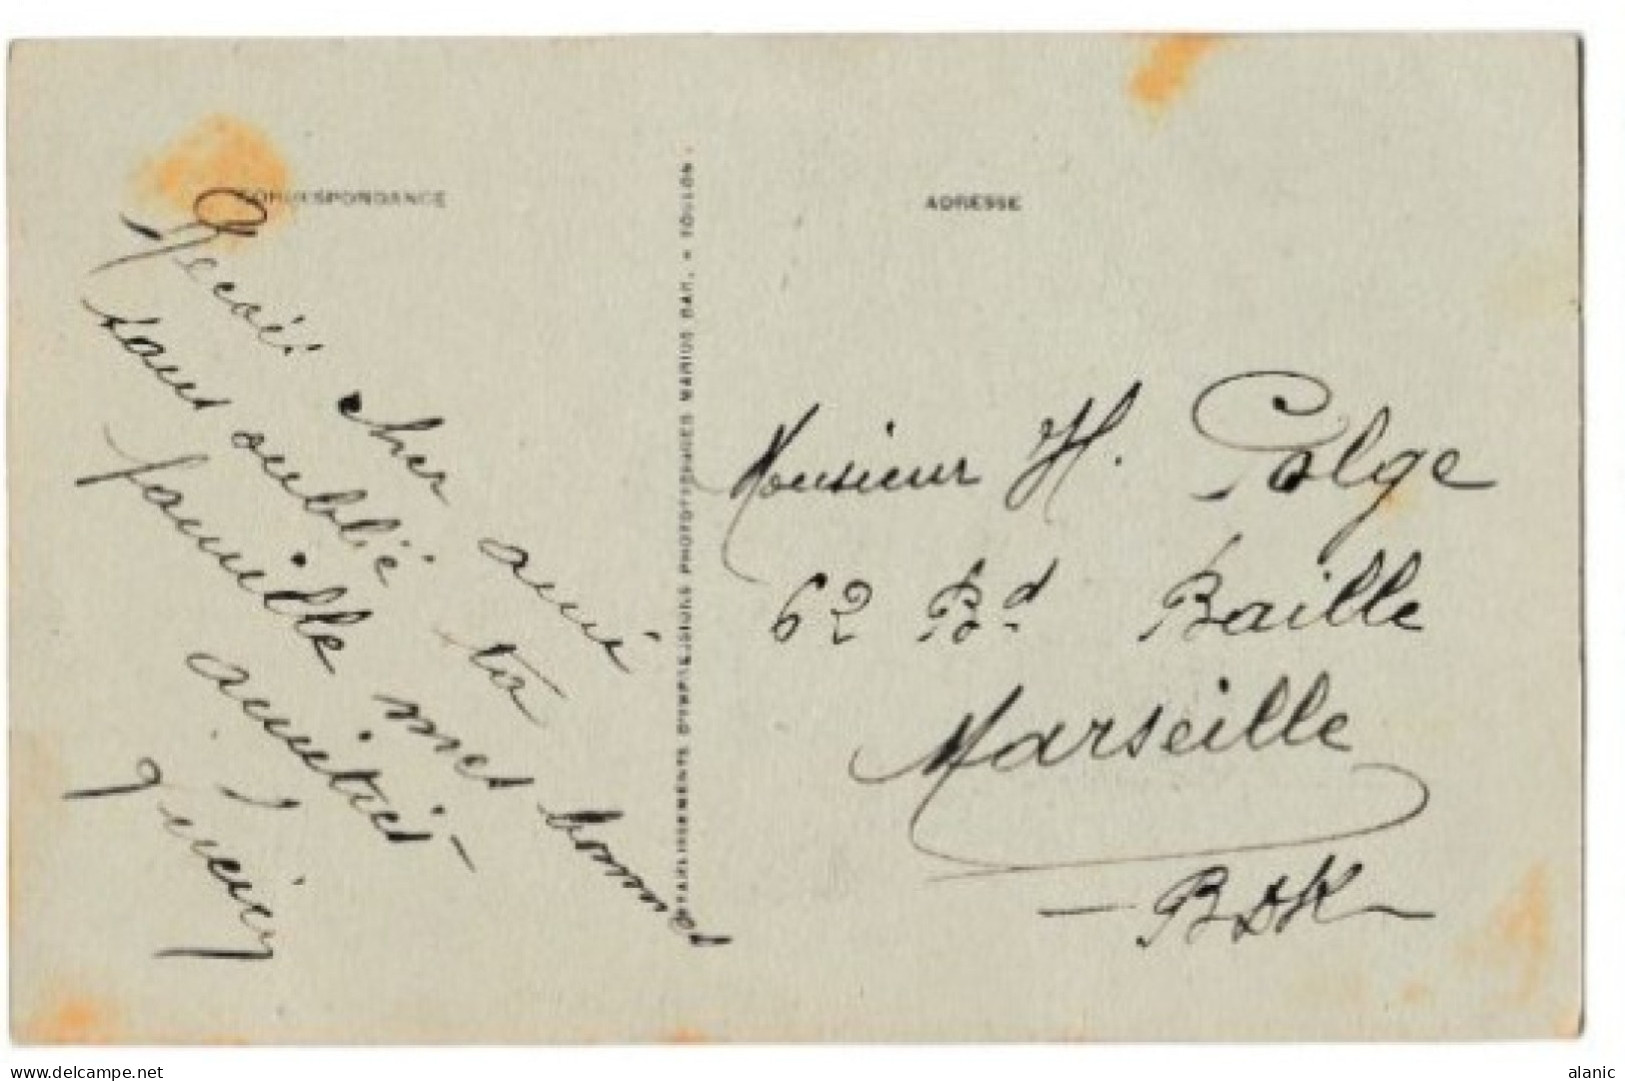 CORRESPONDANCE
ADRESSE
Reçois cher ami
sans oublié ta
famille mes bonnes
amitiés
Monsieur H. Polge
62 Bd Baille
Marseille
BDR
ETABLISSEMENTS D'IMPRESSIONS PHOTOTYPIQUES MARIUS BAR. - TOULON.
delcampe.net
alanic